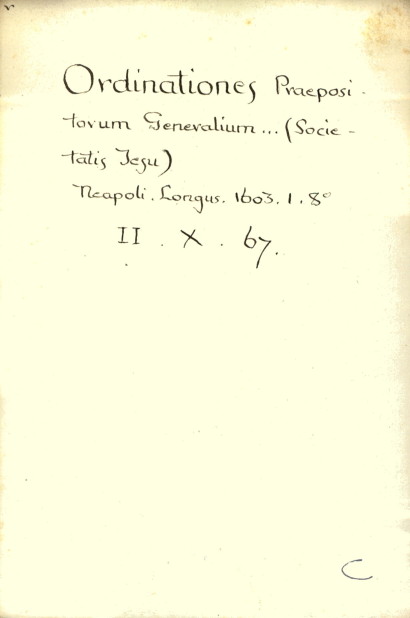 Ordinationes Praeposi-
torum Generalium... (Socie-
tatis Jesu)
Neapoli. Longus. 1603. 1. 8°
II . X . 67.
C